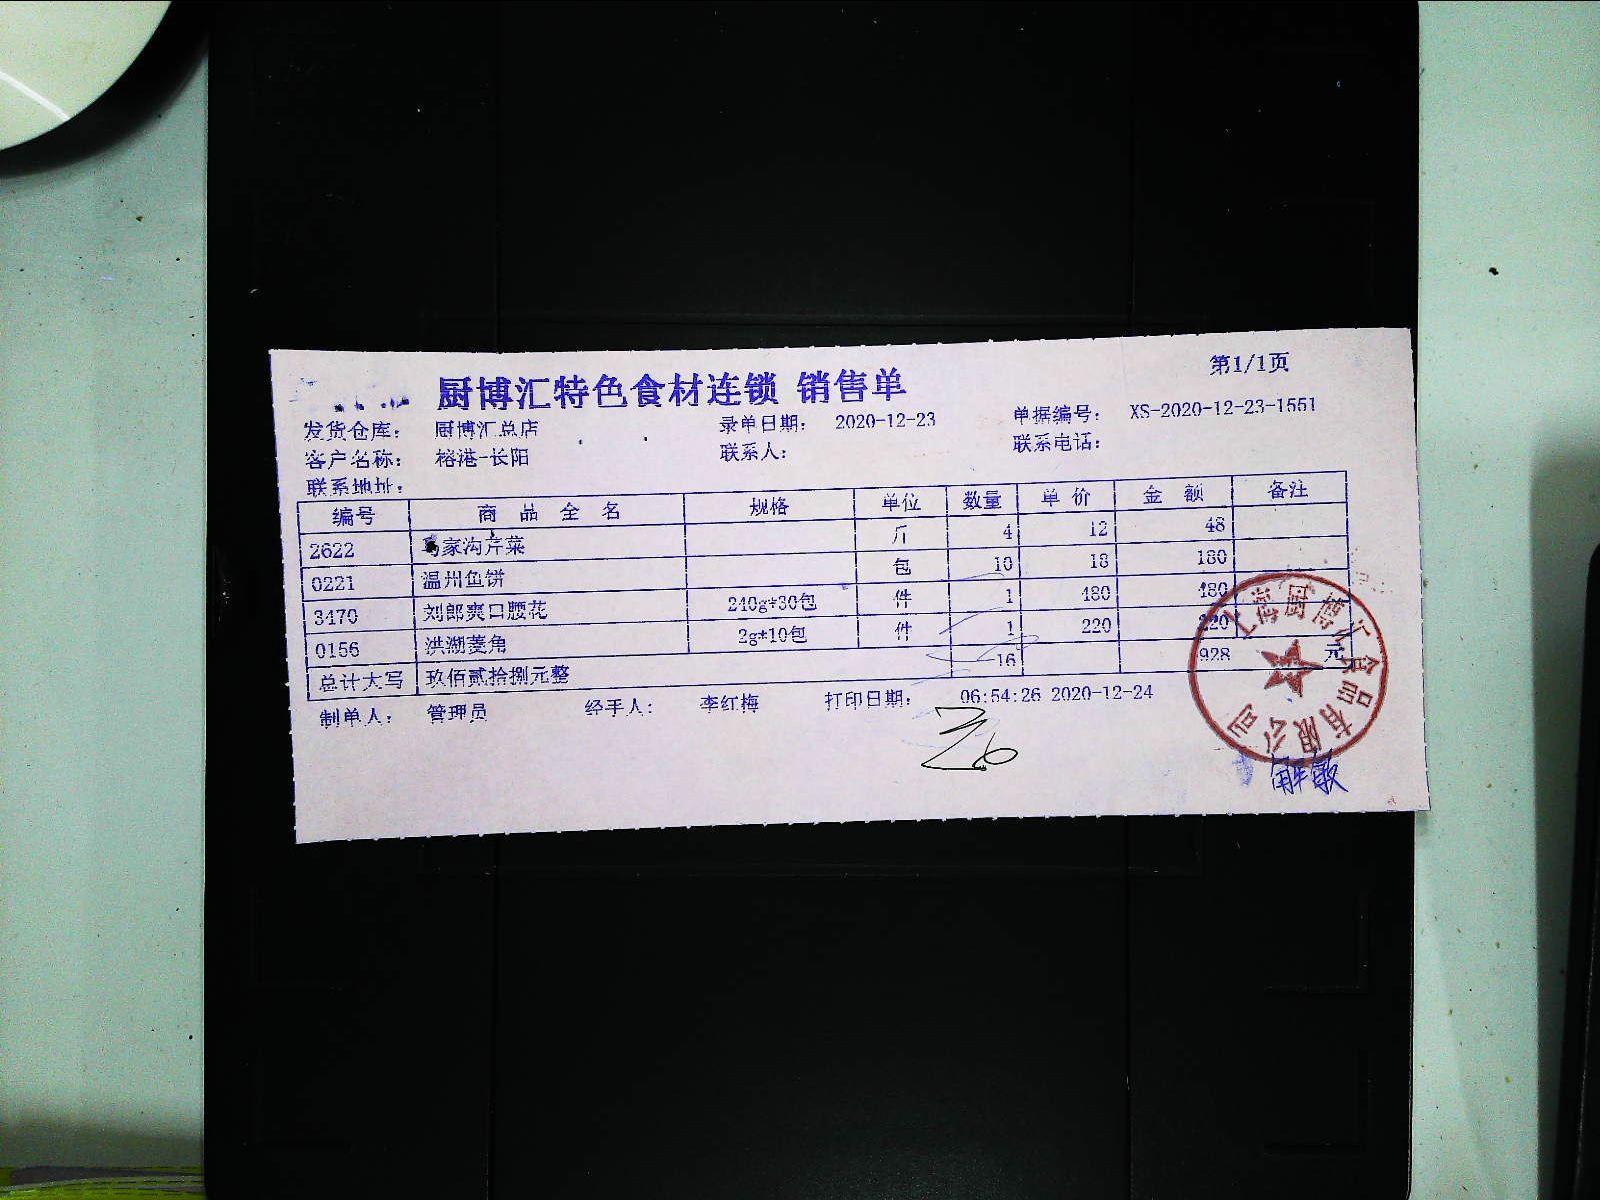 第1/1页
厨博汇特色食材连锁 销售单
发货仓库: 厨博汇总店 录单日期: 2020-12-23 单据编号: XS-2020-12-23-1551
客户名称: 榕港-长阳 联系人: 联系电话:
联系地址:
编号 商品全名 规格 单位 数量 单价 金额 备注
2622 马家沟芹菜 斤 4 12 48
0221 温州鱼饼 包 10 18 180
3470 刘郎爽口腰花 240g*30包 件 1 480 480
0156 洪湖菱角 2g*10包 件 1 220 220
总计大写 玖佰贰拾捌元整 16 928 元
制单人: 管理员 经手人: 李红梅 打印日期: 06:54:26 2020-12-24
上海厨博汇食品有限公司
解敏